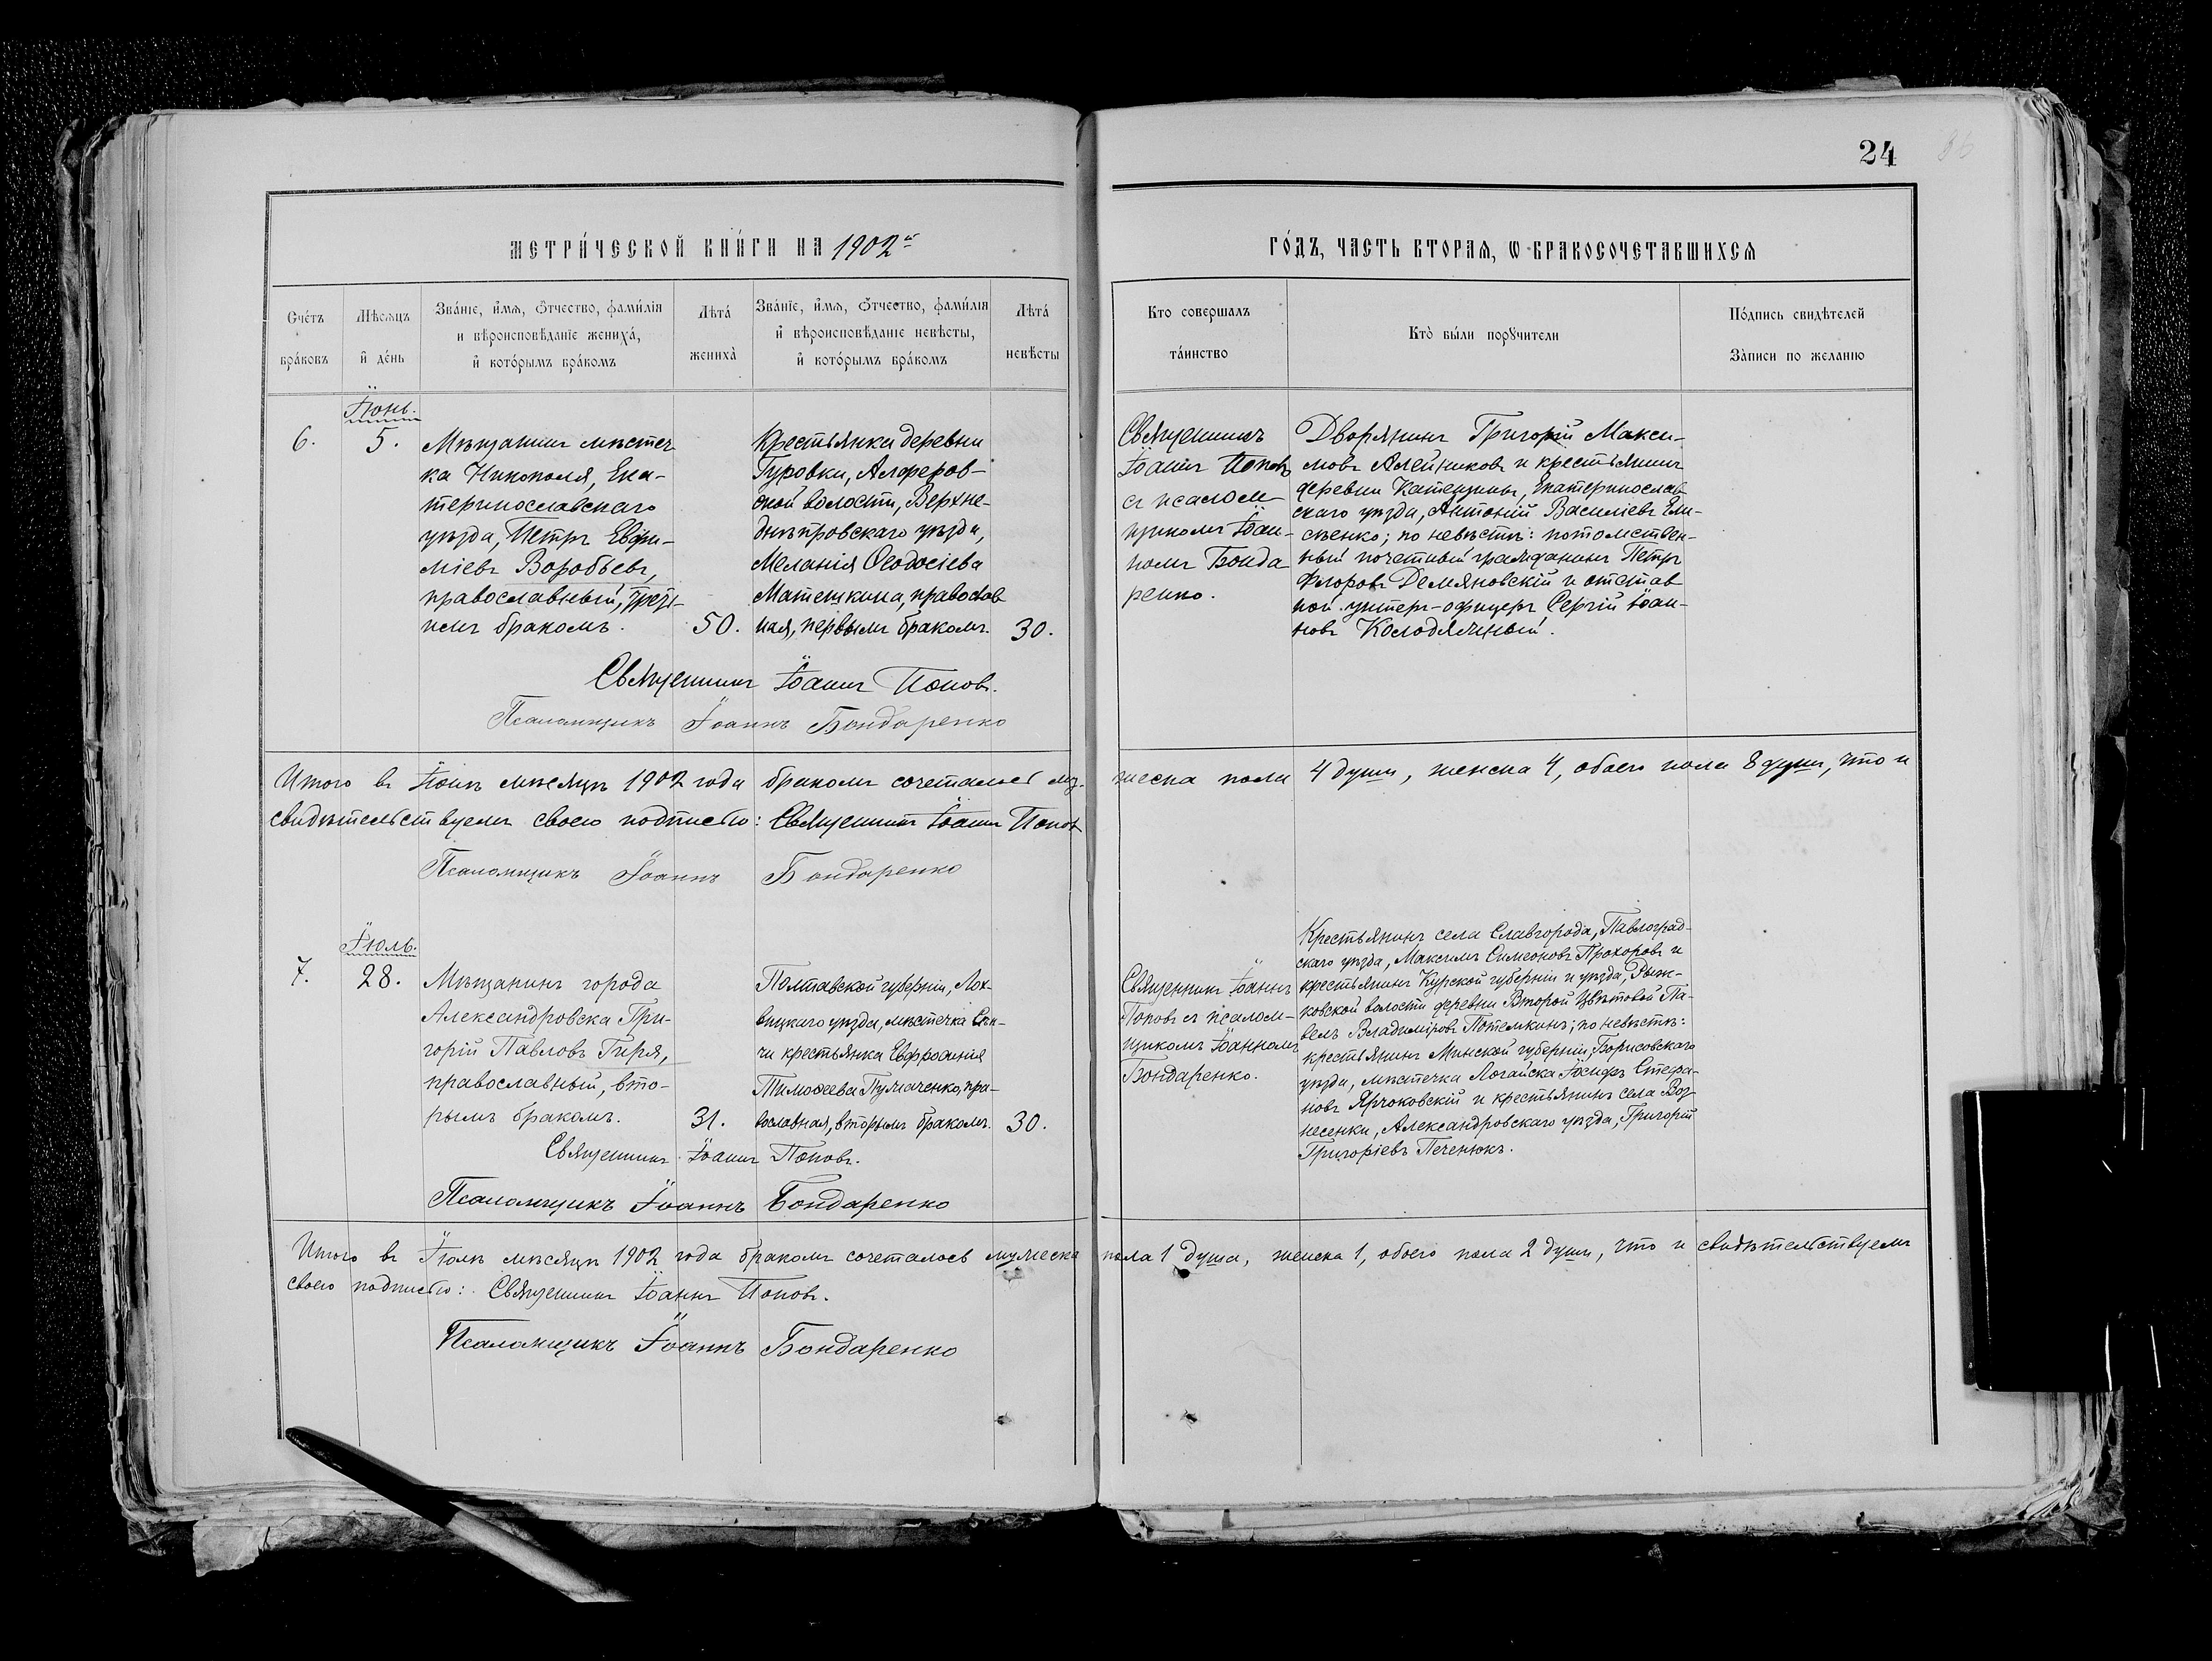 24
МЕТРИ́ЧЕСКОЙ КНИ́ГИ НА 1902й
ГО́ДЪ, ЧАСТЬ ВТОРАѦ, Ѡ БРАКОСОЧЕТАВШИХСѦ
Счетъ браковъ
Мѣсяцъ и день
Зва́нїе, и҆́мѧ, ѻ҆́тчество, фами́лїѧ
и вѣроисповѣданїе жениха̀,
и҆ кото́рымъ бра́комъ
Лѣта̀
жениха̀
Зва́нїе, и҆́мѧ, ѻ҆́тчество, фами́лїѧ
и҆ вѣроисповѣданїе невѣсты,
и҆ кото́рымъ бра́комъ
Лѣта̀
невѣсты
Кто совершалъ
та́инство
Кто̀ бы́ли порꙋчители
По́дпись свидѣтелей
За́писи по желанію
Іюнь.
6.
5.
Мѣщанинъ мѣстеч
ка Никополя, Ека-
теринославскаго
уѣзда, Петръ Евфи-
міевъ Воробьевъ,
православный, треть-
имъ бракомъ.
50.
Крестьянка деревни
Гуровки, Алферов-
ской волости, Верхне-
днѣпровскаго уѣзда,
Меланія Ѳеодосіева
Матешкина, православ
ная, первымъ бракомъ.
30.
Священникъ
Іоаннъ Поповъ
съ псалом-
щикомъ Іоан-
номъ Бонда
ренко.
Дворянинъ Григорій Макси-
мовъ Алейниковъ и крестьянинъ
деревни Катещины, Екатеринослав
скаго уѣзда, Антоній Василіевъ Ели-
сѣенко; по невѣстѣ: потомствен-
ный почетный гражданинъ Петръ
Флоровъ Демяновскій и отстав
ной унтеръ-офицеръ Сергій Іоан-
новъ Колодяжный.
Священникъ Іоаннъ Поповъ.
Псаломщикъ Іоаннъ Бондаренко
Итого въ Іюнѣ мѣсяцѣ 1902 года бракомъ сочеталось му- жеска пола 4 души, женска 4, обоего пола 8 душъ, что и
свидѣтельствуемъ своею подписью: Священникъ Іоаннъ Поповъ
Псаломщикъ Іоаннъ Бондаренко
Іюль.
7.
28.
Мѣщанинъ города
Александровска Гри-
горій Павловъ Гиря,
православный, вто-
рымъ бракомъ.
31.
Полтавской губерніи, Лох-
вицкаго уѣзда, мѣстечка Сѣн-
чи крестьянка Евфросинія
Тимоѳеева Пулначенко, пра-
вославная, вторымъ бракомъ.
30.
Священникъ Іоаннъ
Поповъ съ псалом-
щикомъ Іоанномъ
Бондаренко.
Крестьянинъ села Славгорода, Павлоград-
скаго уѣзда, Максимъ Симеоновъ Прохоровъ и
крестьянинъ Курской губерніи и уѣзда, Рыж-
ковской волости деревни Второй Цвѣтовой Па-
велъ Владиміровъ Потемкинъ; по невѣстѣ:
крестьянинъ Минской губерніи, Борисовскаго
уѣзда, мѣстечка Логайска Іосифъ Стефа-
новъ Ярчоковскій и крестьянинъ села Воз-
несенки, Александровскаго уѣзда, Григорій
Григоріевъ Печенюкъ.
Священникъ Іоаннъ Поповъ.
Псаломщикъ Іоаннъ Бондаренко
Итого въ Іюлѣ мѣсяцѣ 1902 года бракомъ сочеталось мужеска пола 1 душа, женска 1, обоего пола 2 души, что и свидѣтельствуемъ
своею подписью: Священникъ Іоаннъ Поповъ.
Псаломщикъ Іоаннъ Бондаренко